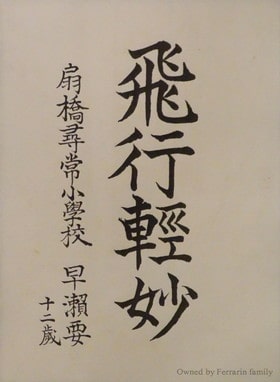 飛行輕妙
扇橋尋常小學校 早瀬要
十二歲
Owned by Ferrarin family